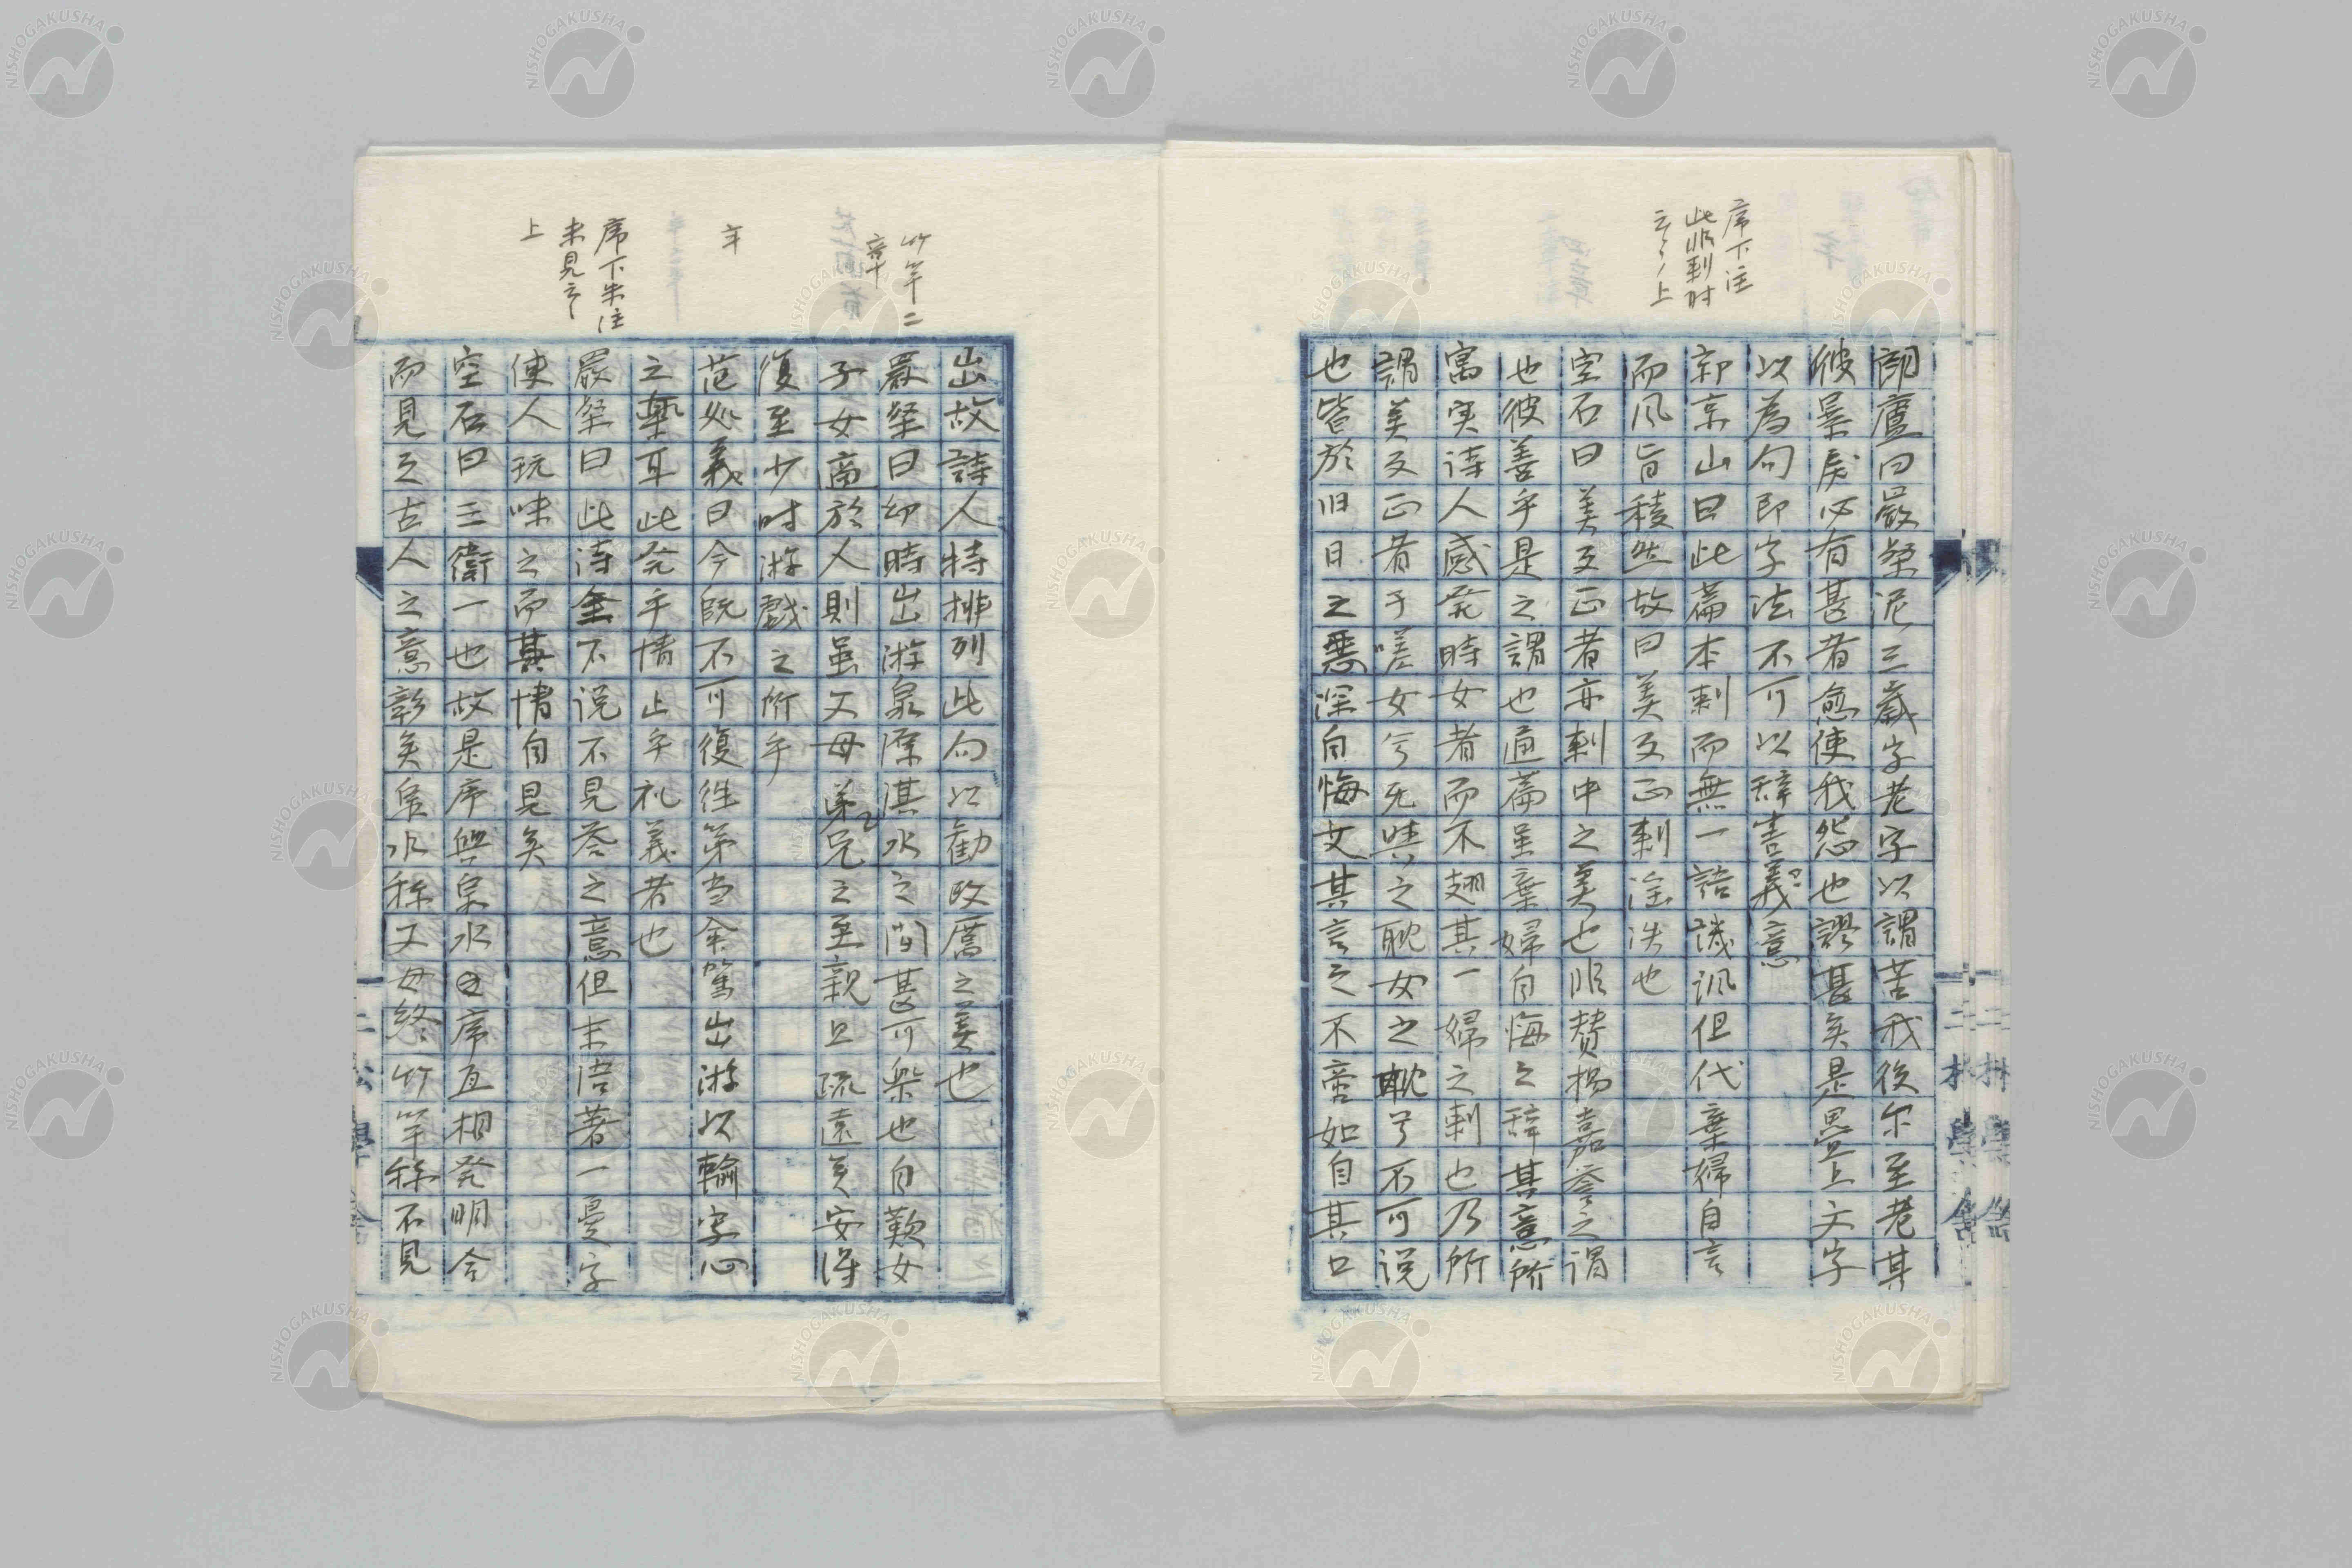 序下注
此非刺时
云々上
朗廬曰嚴粲泥三歳字老字以謂苦我後尓至老其
彼暴戻必有甚者愈使我怨也謬甚矣是畳上文字
以為句即字法不可以辞害義意
郭京山曰此篇本刺而無一語譏諷但代棄婦自言
而风旨稜然故曰美反正刺淫泆也
空石曰美反正者亦刺中之美也非賛揚嘉誉之谓
也彼善乎是之謂也通篇虽棄婦自悔之辞其意所
寓実诗人感発時女者而不翅其一婦之刺也乃所
謂美反正者于嗟女兮无與士之耽女之耽兮不可说
也皆於旧日之悪深自悔艾其言之不啻如自其口
出故詩人特排列此句以勧改厲之美也
竹竿二
章
嚴粲曰幼時出游泉源淇水之间甚可楽也自歎女
子女適於人則虽父母弟兄之至親且疏遠矣安得
復至少时游戯之所乎
范処義曰今既不可復往第当余駕出游以輸字心
之藴耳此発乎情止乎礼義者也
序下朱注
未見云々
上
嚴粲曰此诗全不说不見答之意但末语著一憂字
使人玩味之而其情自見矣
空石曰三衛一也故是序與泉水之序互相発明合
而見之古人之意彰矣泉水称父母終竹竿称不見
二松學舎
NISHOGAKUSHA